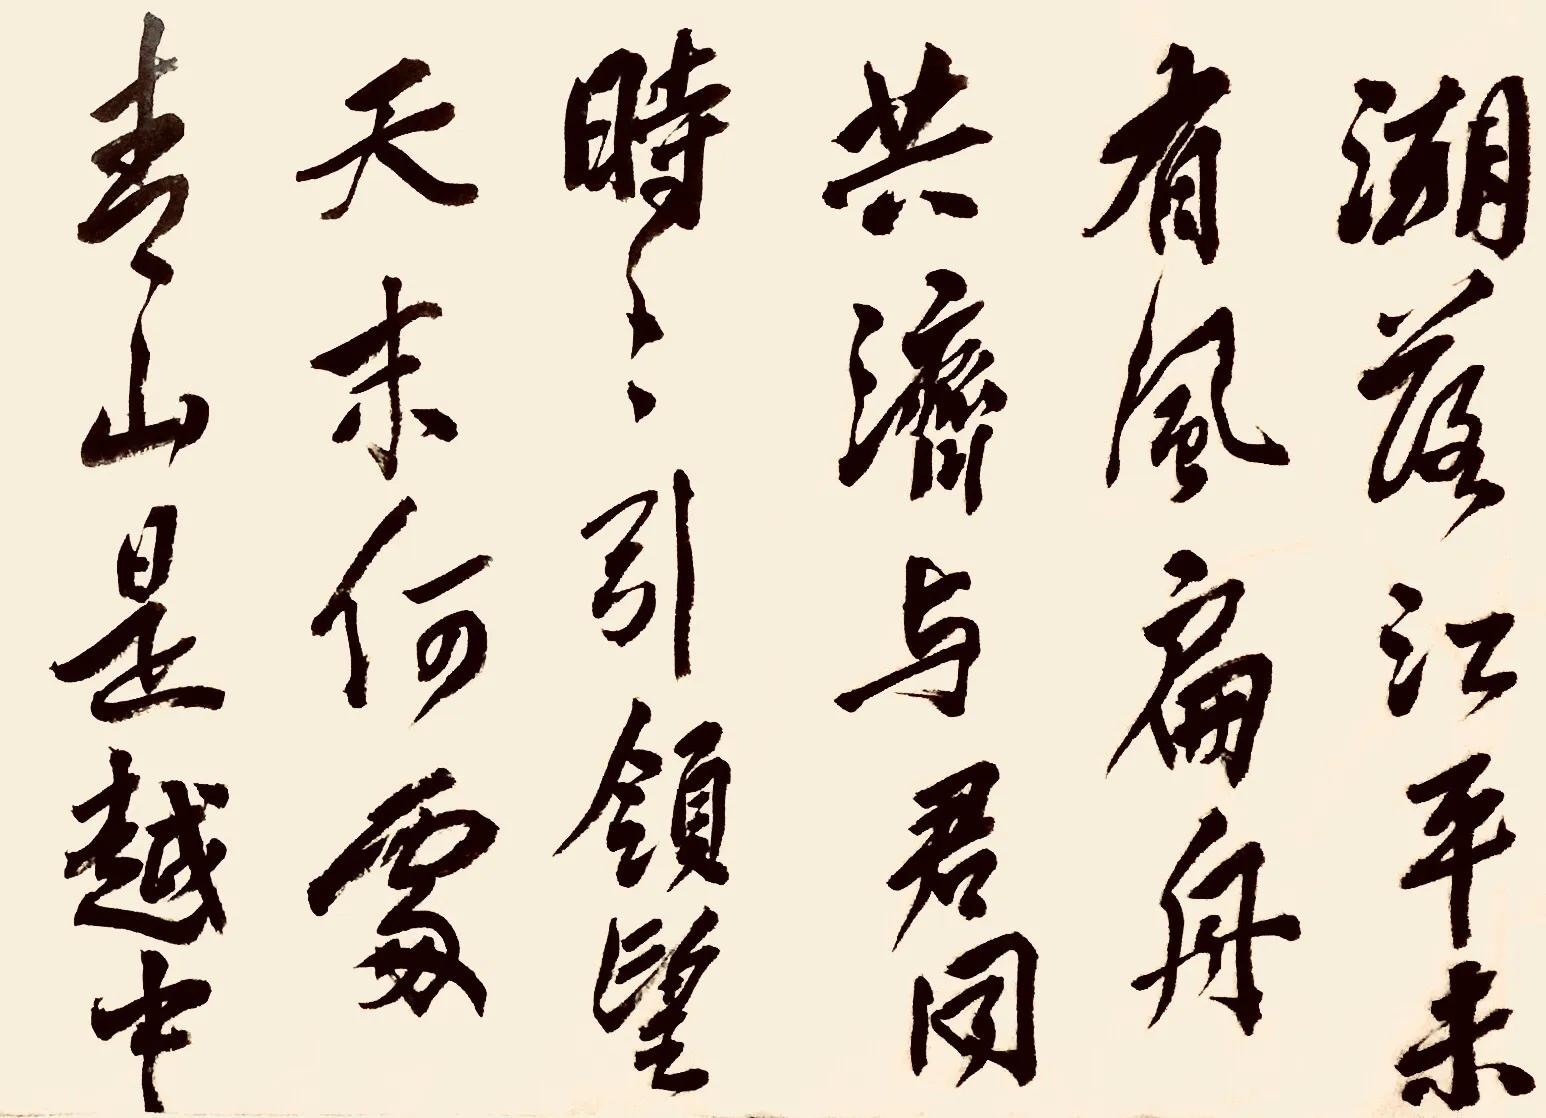 潮落江平未
有風扁舟
共濟与君同
時々引領望
天末何處
青山是越中